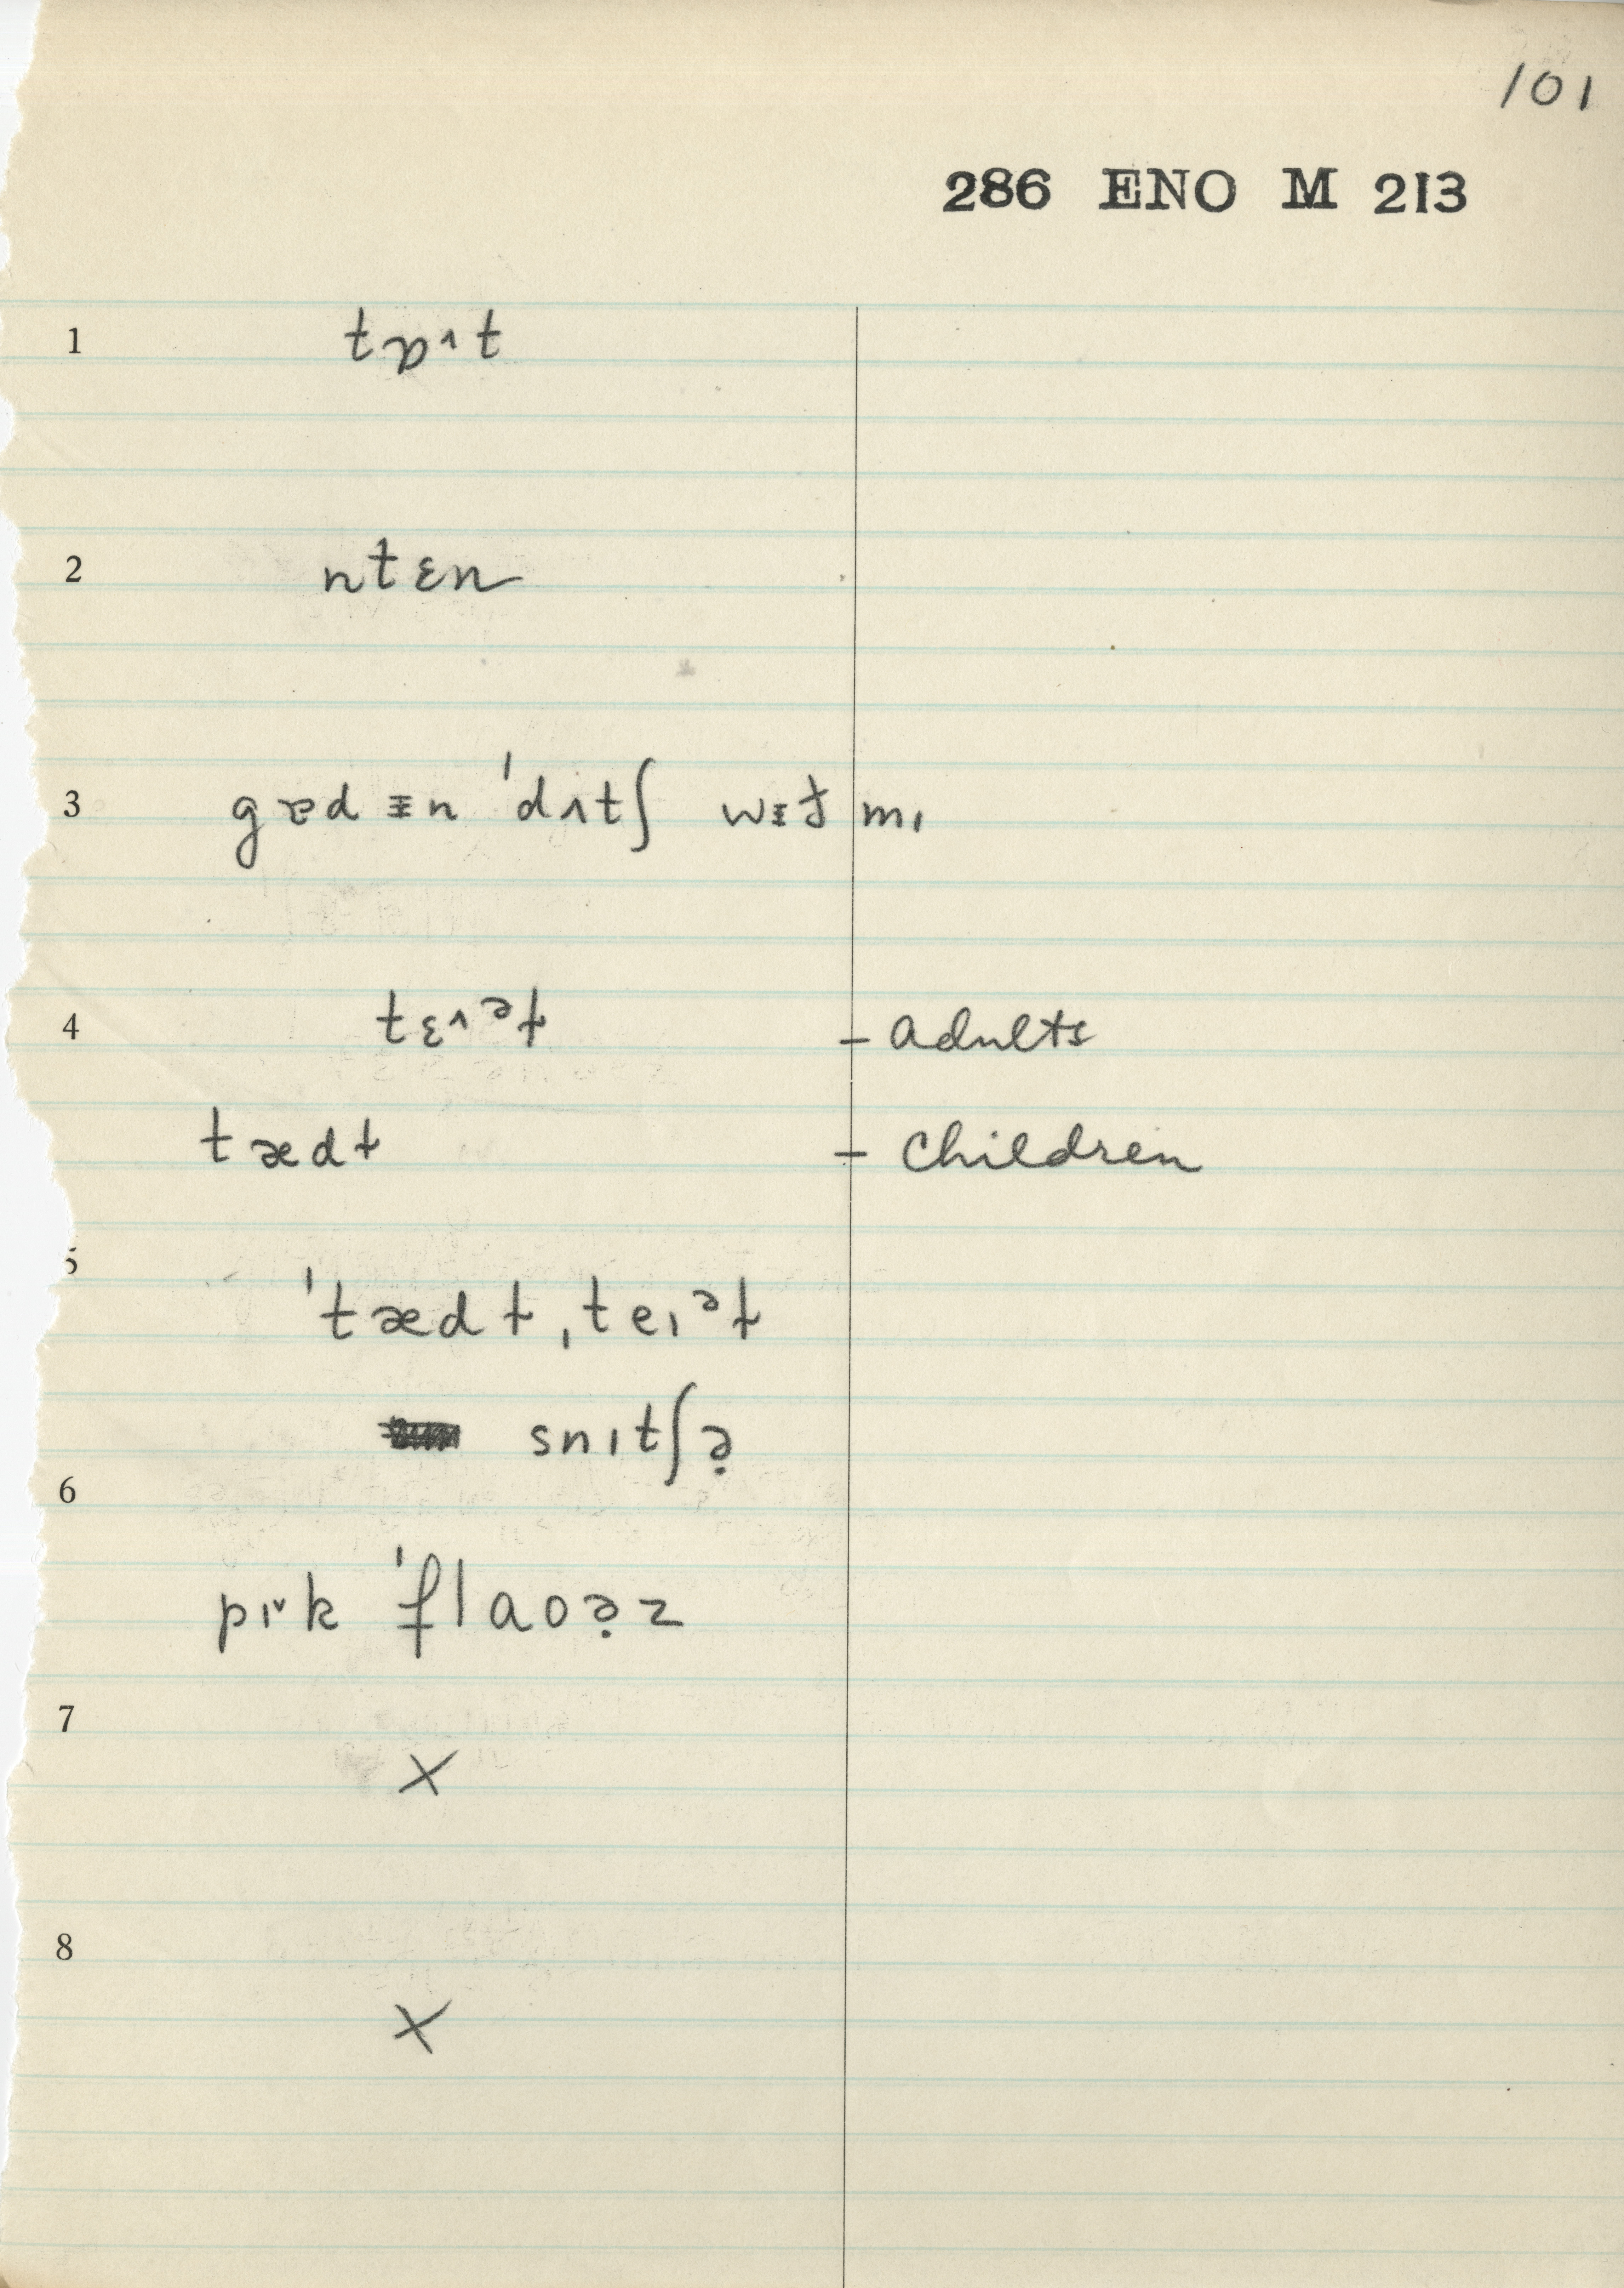 101
286 ENO M 213
1 tɒ˄t
2 ntɛn
3 gɐd ᵻn ˈdʌtʃ wᵻɫ mɪ
4 tɛ˄ᵊɫ – adults
tædɫ – children
5
ˈtædɫ ˌteɪᵊɫ
snɪtʃə̣
6
pɪ˅k ˈflaoə̣z
7
X
8
X